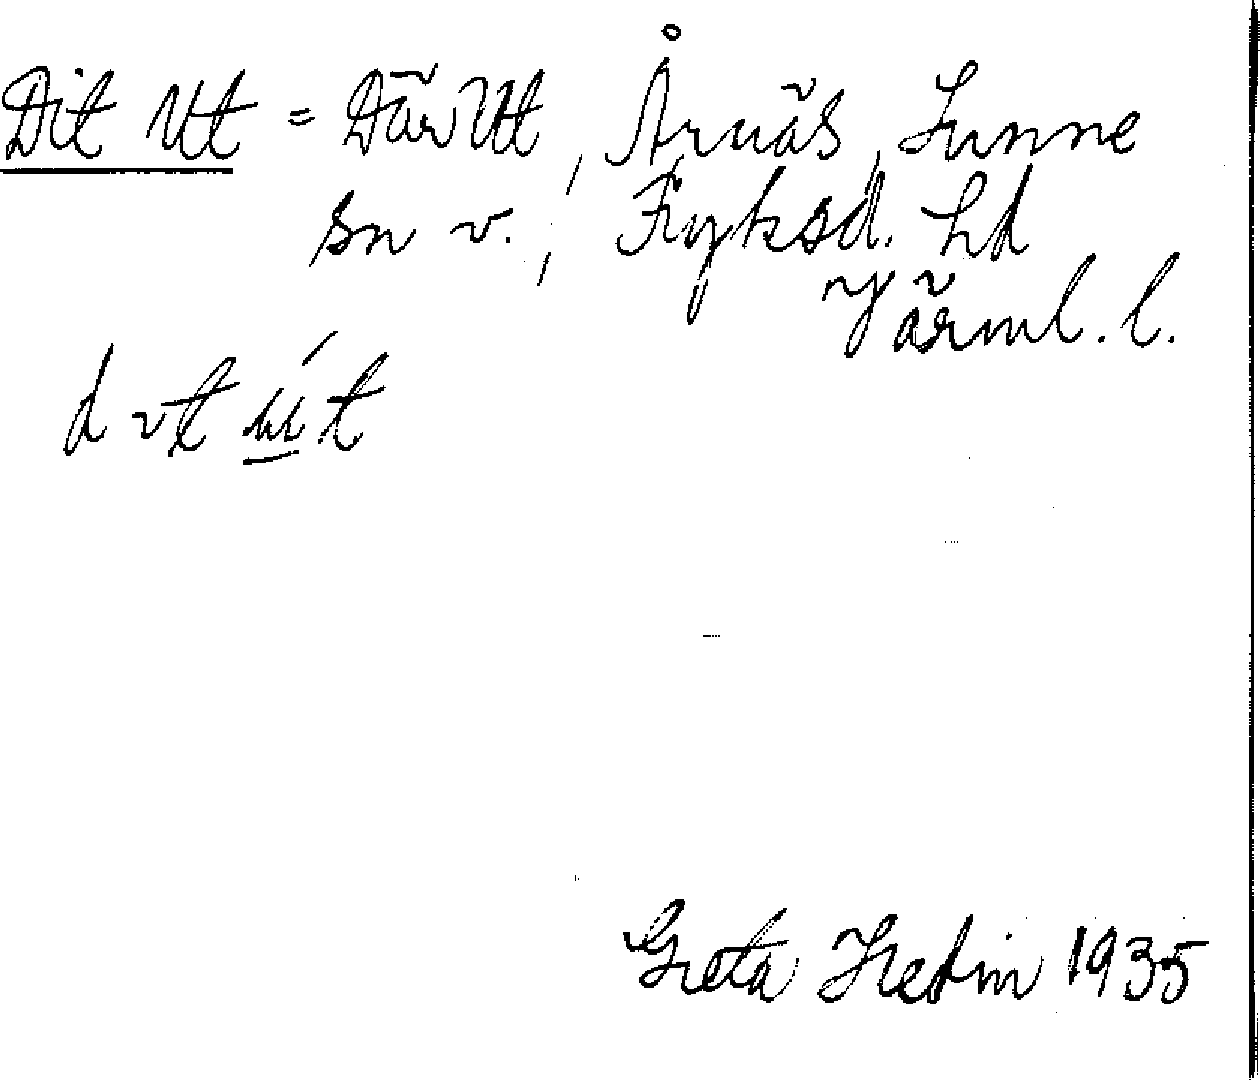 Dit Ut = Där Ut, Årnäs, Sunne
sn v., Fryksd. hd
Värml. l.
d ɩt út
Greta Hedin 1935